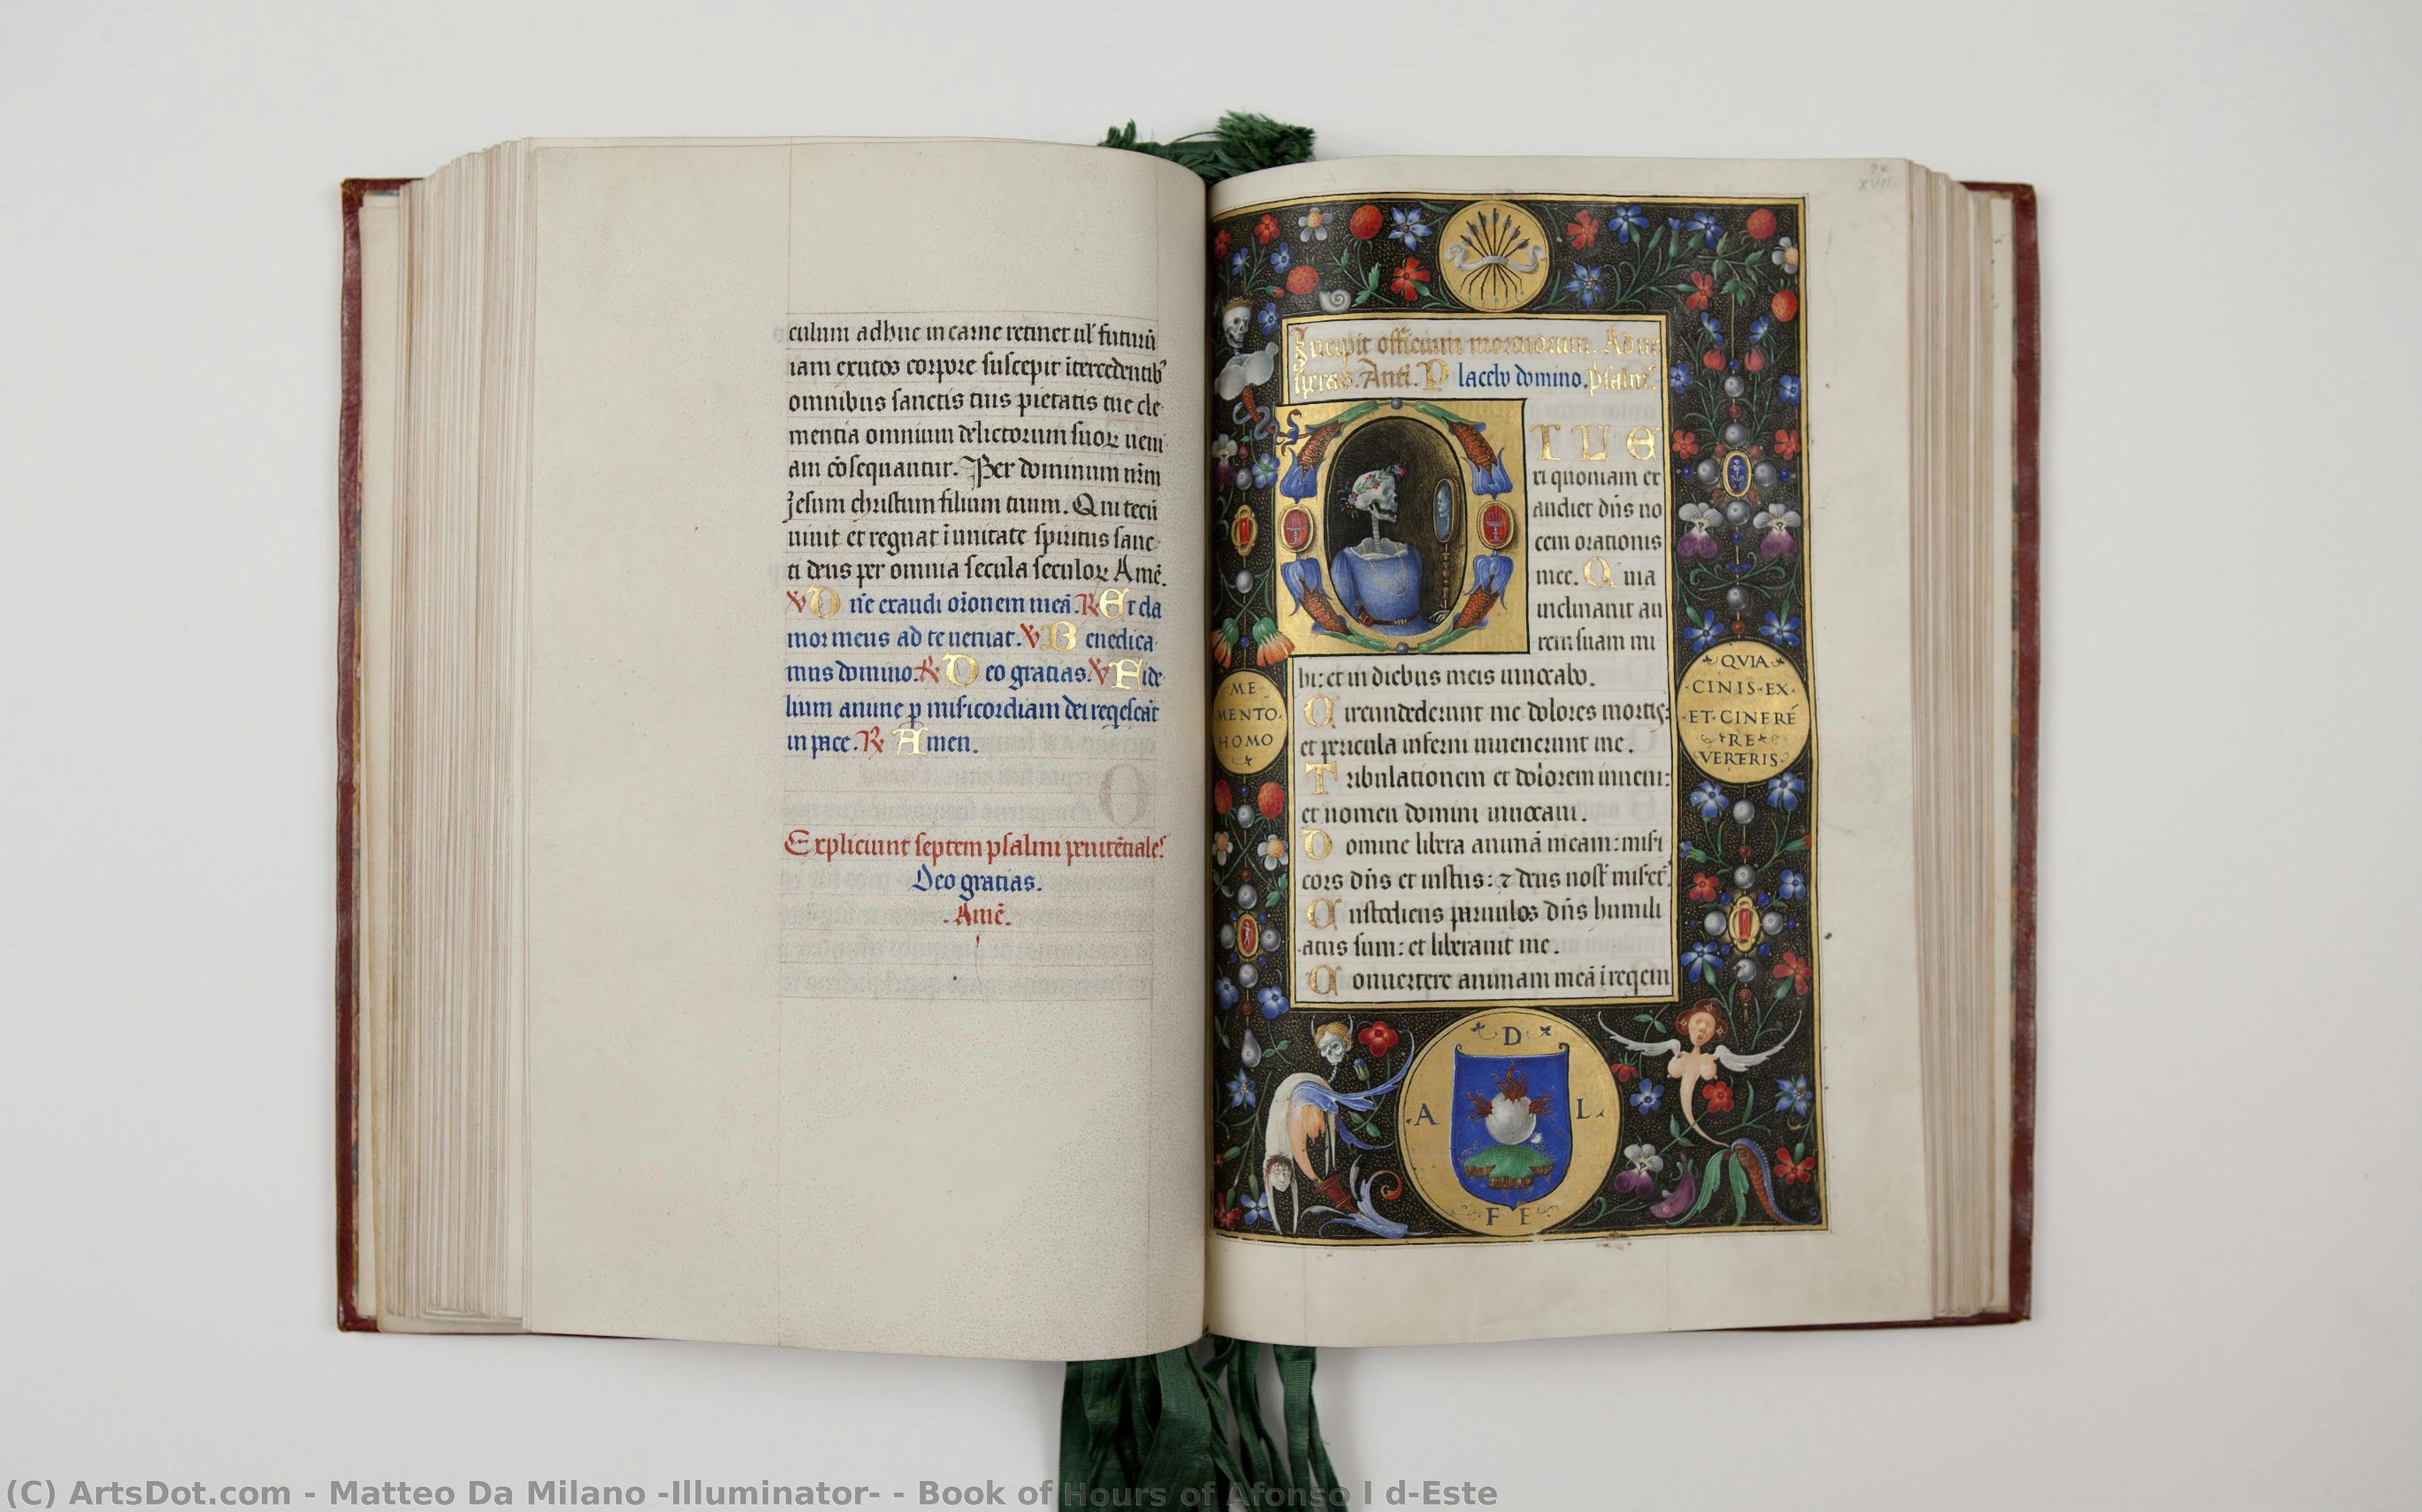 culum adhuc in carne retinet ul' futurū
iam exutos corpore suscepit ītercedentib'
omnibus sanctis tuis pietatis tue cle
mentia omnium delictorum suoꝝ ueni
am cōsequantur. Per dominum nr̄m
Jesum christum filium tuum. Qui tecū
uiuit et regnat ī unitate spiritus sanc
ti deus per omnia secula seculoꝝ Amē.
℣ Dn̄e exaudi or̄onem meā. ℟ Et cla
mor meus ad te ueniat. ℣ Benedica
mus domino. ℟ Deo gratias. ℣ Fide
lium anime ꝑ misericordiam dei reqescāt
in pace. ℟ Amen.
Expliciunt septem psalmi penitētiales.
Deo gratias.
. Amē.
XVII
Incipit officium mortuorum. Ad ue
speras. Anti. Placebo domino. Psalm'.
DILE
xi quoniam ex
audiet dn̄s uo
cem orationis
mee. Quia
inclinauit au
rem suam mi
hi: et in diebus meis inuocabo.
Circumdederunt me dolores mortis:
et pericula inferni inuenerunt me.
Tribulationem et dolorem inueni:
et nomen domini inuocaui.
Domine libera animā meam: miseri
cors dn̄s et iustus: ⁊ deus nost' miseret'.
Custodiens paruulos dn̄s humili
atus sum: et liberauit me.
Conuertere animam meā ī reqem
ME
MENTO
HOMO
QVIA
CINIS·EX·
·ET·CINERĒ
RE
VERTERIS
D
·A L·
F E
(C) ArtsDot.com - Matteo Da Milano -Illuminator- - Book of Hours of Afonso I d-Este